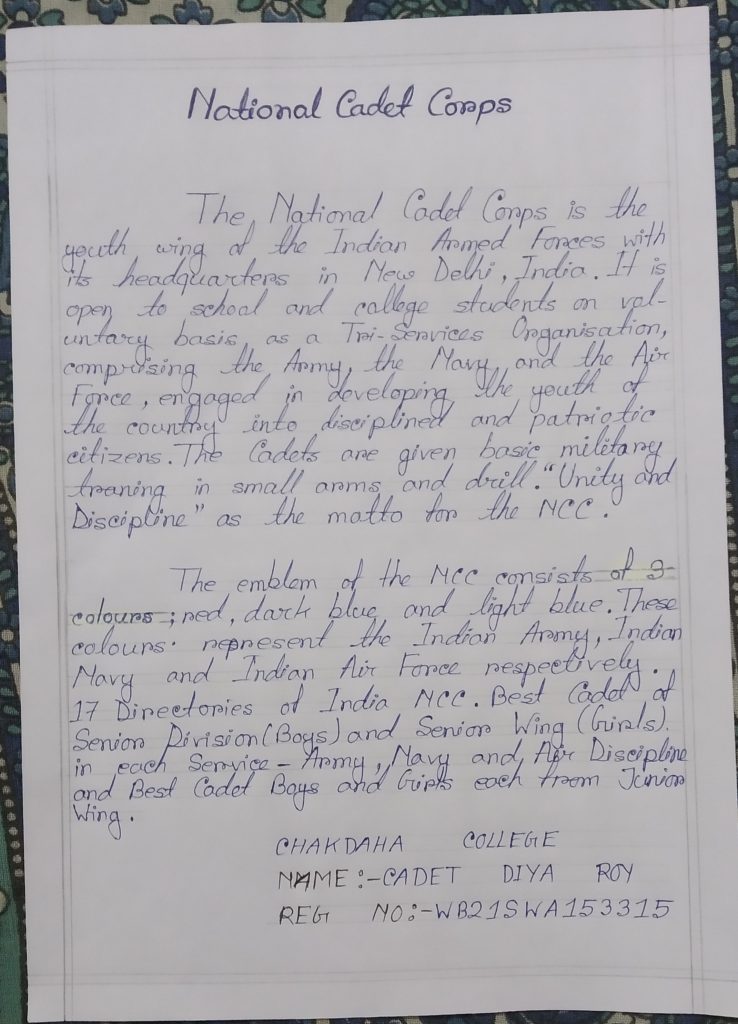 National Cadet Corps
The National Cadet Corps is the
youth wing of the Indian Armed Forces with
its headquarters in New Delhi, India. It is
open to school and college students on vol-
untary basis as a Tri-Services Organisation,
comprising the Army, the Navy and the Air
Force, engaged in developing the youth of
the country into disciplined and patriotic
citizens. The Cadets are given basic military
traning in small arms and drill. "Unity and
Discipline" as the motto for the NCC.
The emblem of the NCC consists of 3-
colours; red, dark blue and light blue. These
colours represent the Indian Army, Indian
Navy and Indian Air Force respectively.
17 Directories of India NCC. Best Cadet of
Senior Division(Boys) and Senior Wing (Girls).
in each Service - Army, Navy and Air Discipline
and Best Cadet Boys and Girls each from Junior
Wing.
CHAKDAHA COLLEGE
NAME :- CADET DIYA ROY
REG NO:- WB21SWA153315